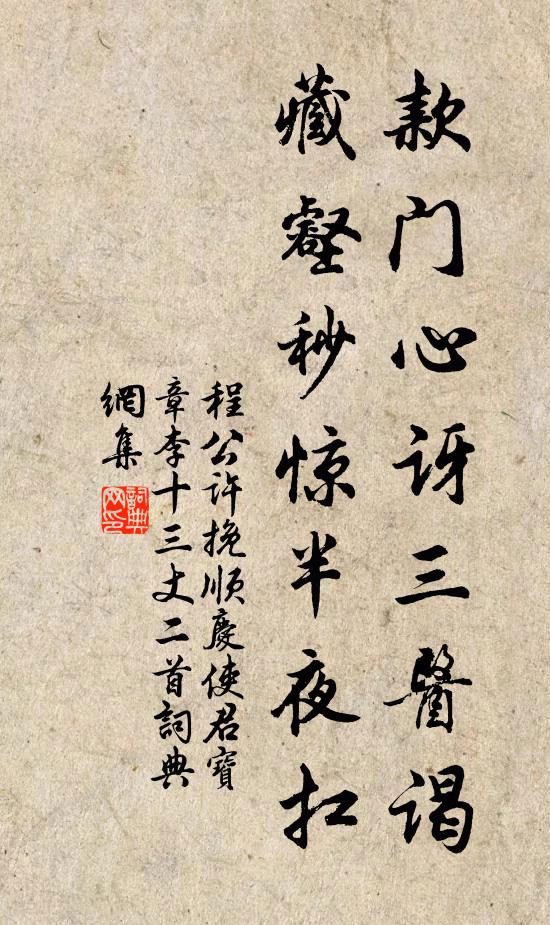 款门心讶三醫谒
藏壑秒惊半夜扛
程公许挽顺慶使君寶
章李十三丈二首詞典
網集
詞典
网印